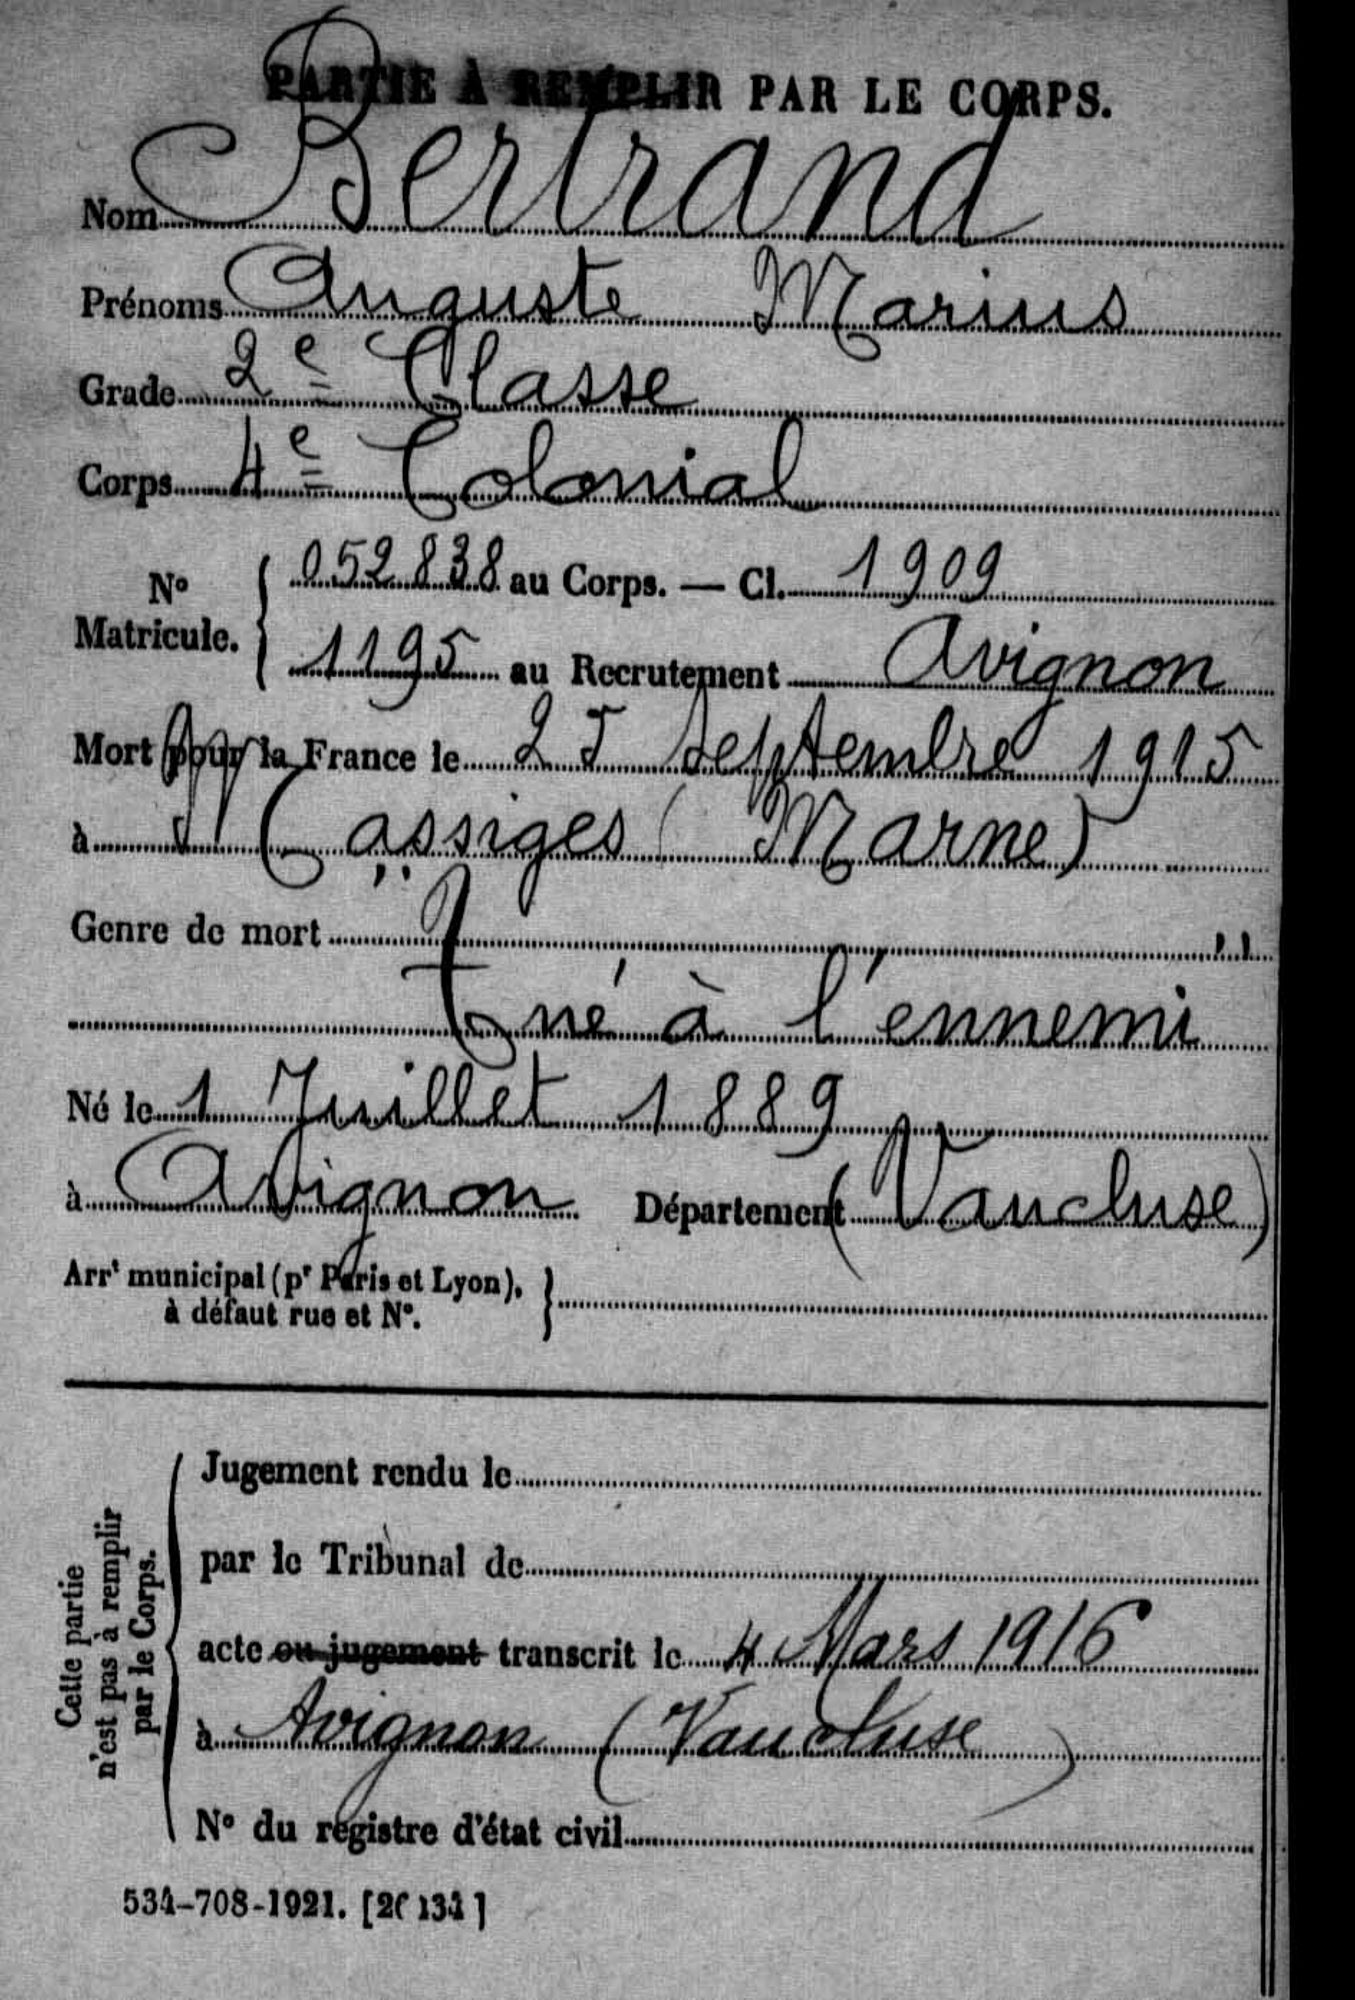 PARTIE À REMPLIR PAR LE CORPS.
Nom Bertrand
Prénoms Auguste Marius
Grade 2e Classe
Corps 4e Colonial
No Matricule. { 052838 au Corps. — Cl. 1909
1195 au Recrutement Avignon
Mort pour la France le 25 septembre 1915
à Massiges (Marne)
Genre de mort
Tué à l'ennemi
Né le 1 Juillet 1889
à Avignon Département (Vaucluse)
Arrt municipal (pr Paris et Lyon), }
à défaut rue et No.
Cette partie
n'est pas à remplir
par le Corps.
Jugement rendu le
par le Tribunal de
acte ou jugement transcrit le 4 Mars 1916
à Avignon (Vaucluse)
No du registre d'état civil
534-708-1921. [26134]